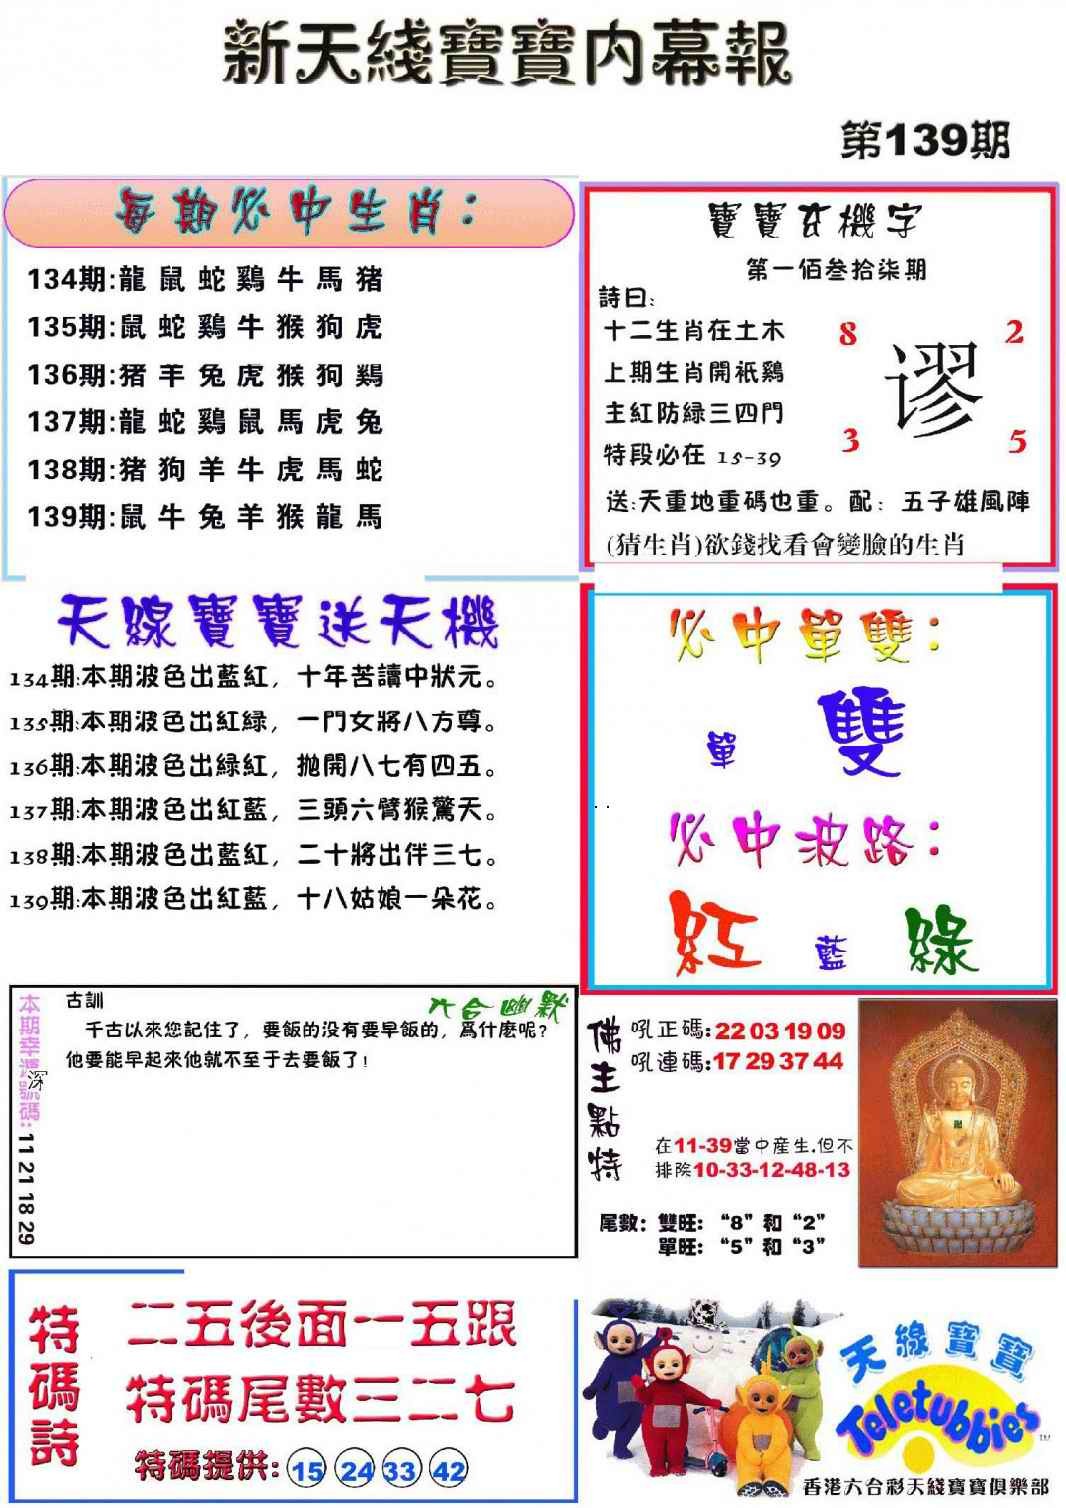 新天綫寶寶内幕報
第139期
每期必中生肖：
134期:龍 鼠 蛇 鷄 牛 馬 猪
135期:鼠 蛇 鷄 牛 猴 狗 虎
136期:猪 羊 兔 虎 猴 狗 鷄
137期:龍 蛇 鷄 鼠 馬 虎 兔
138期:猪 狗 羊 牛 虎 馬 蛇
139期:鼠 牛 兔 羊 猴 龍 馬
寶寶玄機字
第一佰叁拾柒期
詩曰：
十二生肖在土木
上期生肖開祇鷄
主紅防緑三四門
特段必在 15-39
8 2
谬
3 5
送:天重地重碼也重。配：五子雄風陣
(猜生肖)欲錢找看會變臉的生肖
天線寶寶送天機
134期:本期波色出藍紅，十年苦讀中狀元。
135期:本期波色出紅緑，一門女將八方尊。
136期:本期波色出緑紅，抛開八七有四五。
137期:本期波色出紅藍，三頭六臂猴驚天。
138期:本期波色出藍紅，二十將出伴三七。
139期:本期波色出紅藍，十八姑娘一朵花。
必中單雙：
單 雙
必中波路：
紅 藍 綠
本期幸運號碼: 11 21 18 29
深
古訓
六合幽默
千古以來您記住了，要飯的没有要早飯的，爲什麽呢？
他要能早起來他就不至于去要飯了！
佛主點特
吼正碼:22 03 19 09
吼連碼:17 29 37 44
在11-39當中産生.但不
排除10-33-12-48-13
尾數：雙旺：“8”和“2”
單旺：“5”和“3”
特碼詩
二五後面一五跟
特碼尾數三二七
特碼提供: 15 24 33 42
天線寶寶
Teletubbies
TM
香港六合彩天綫寶寶俱樂部